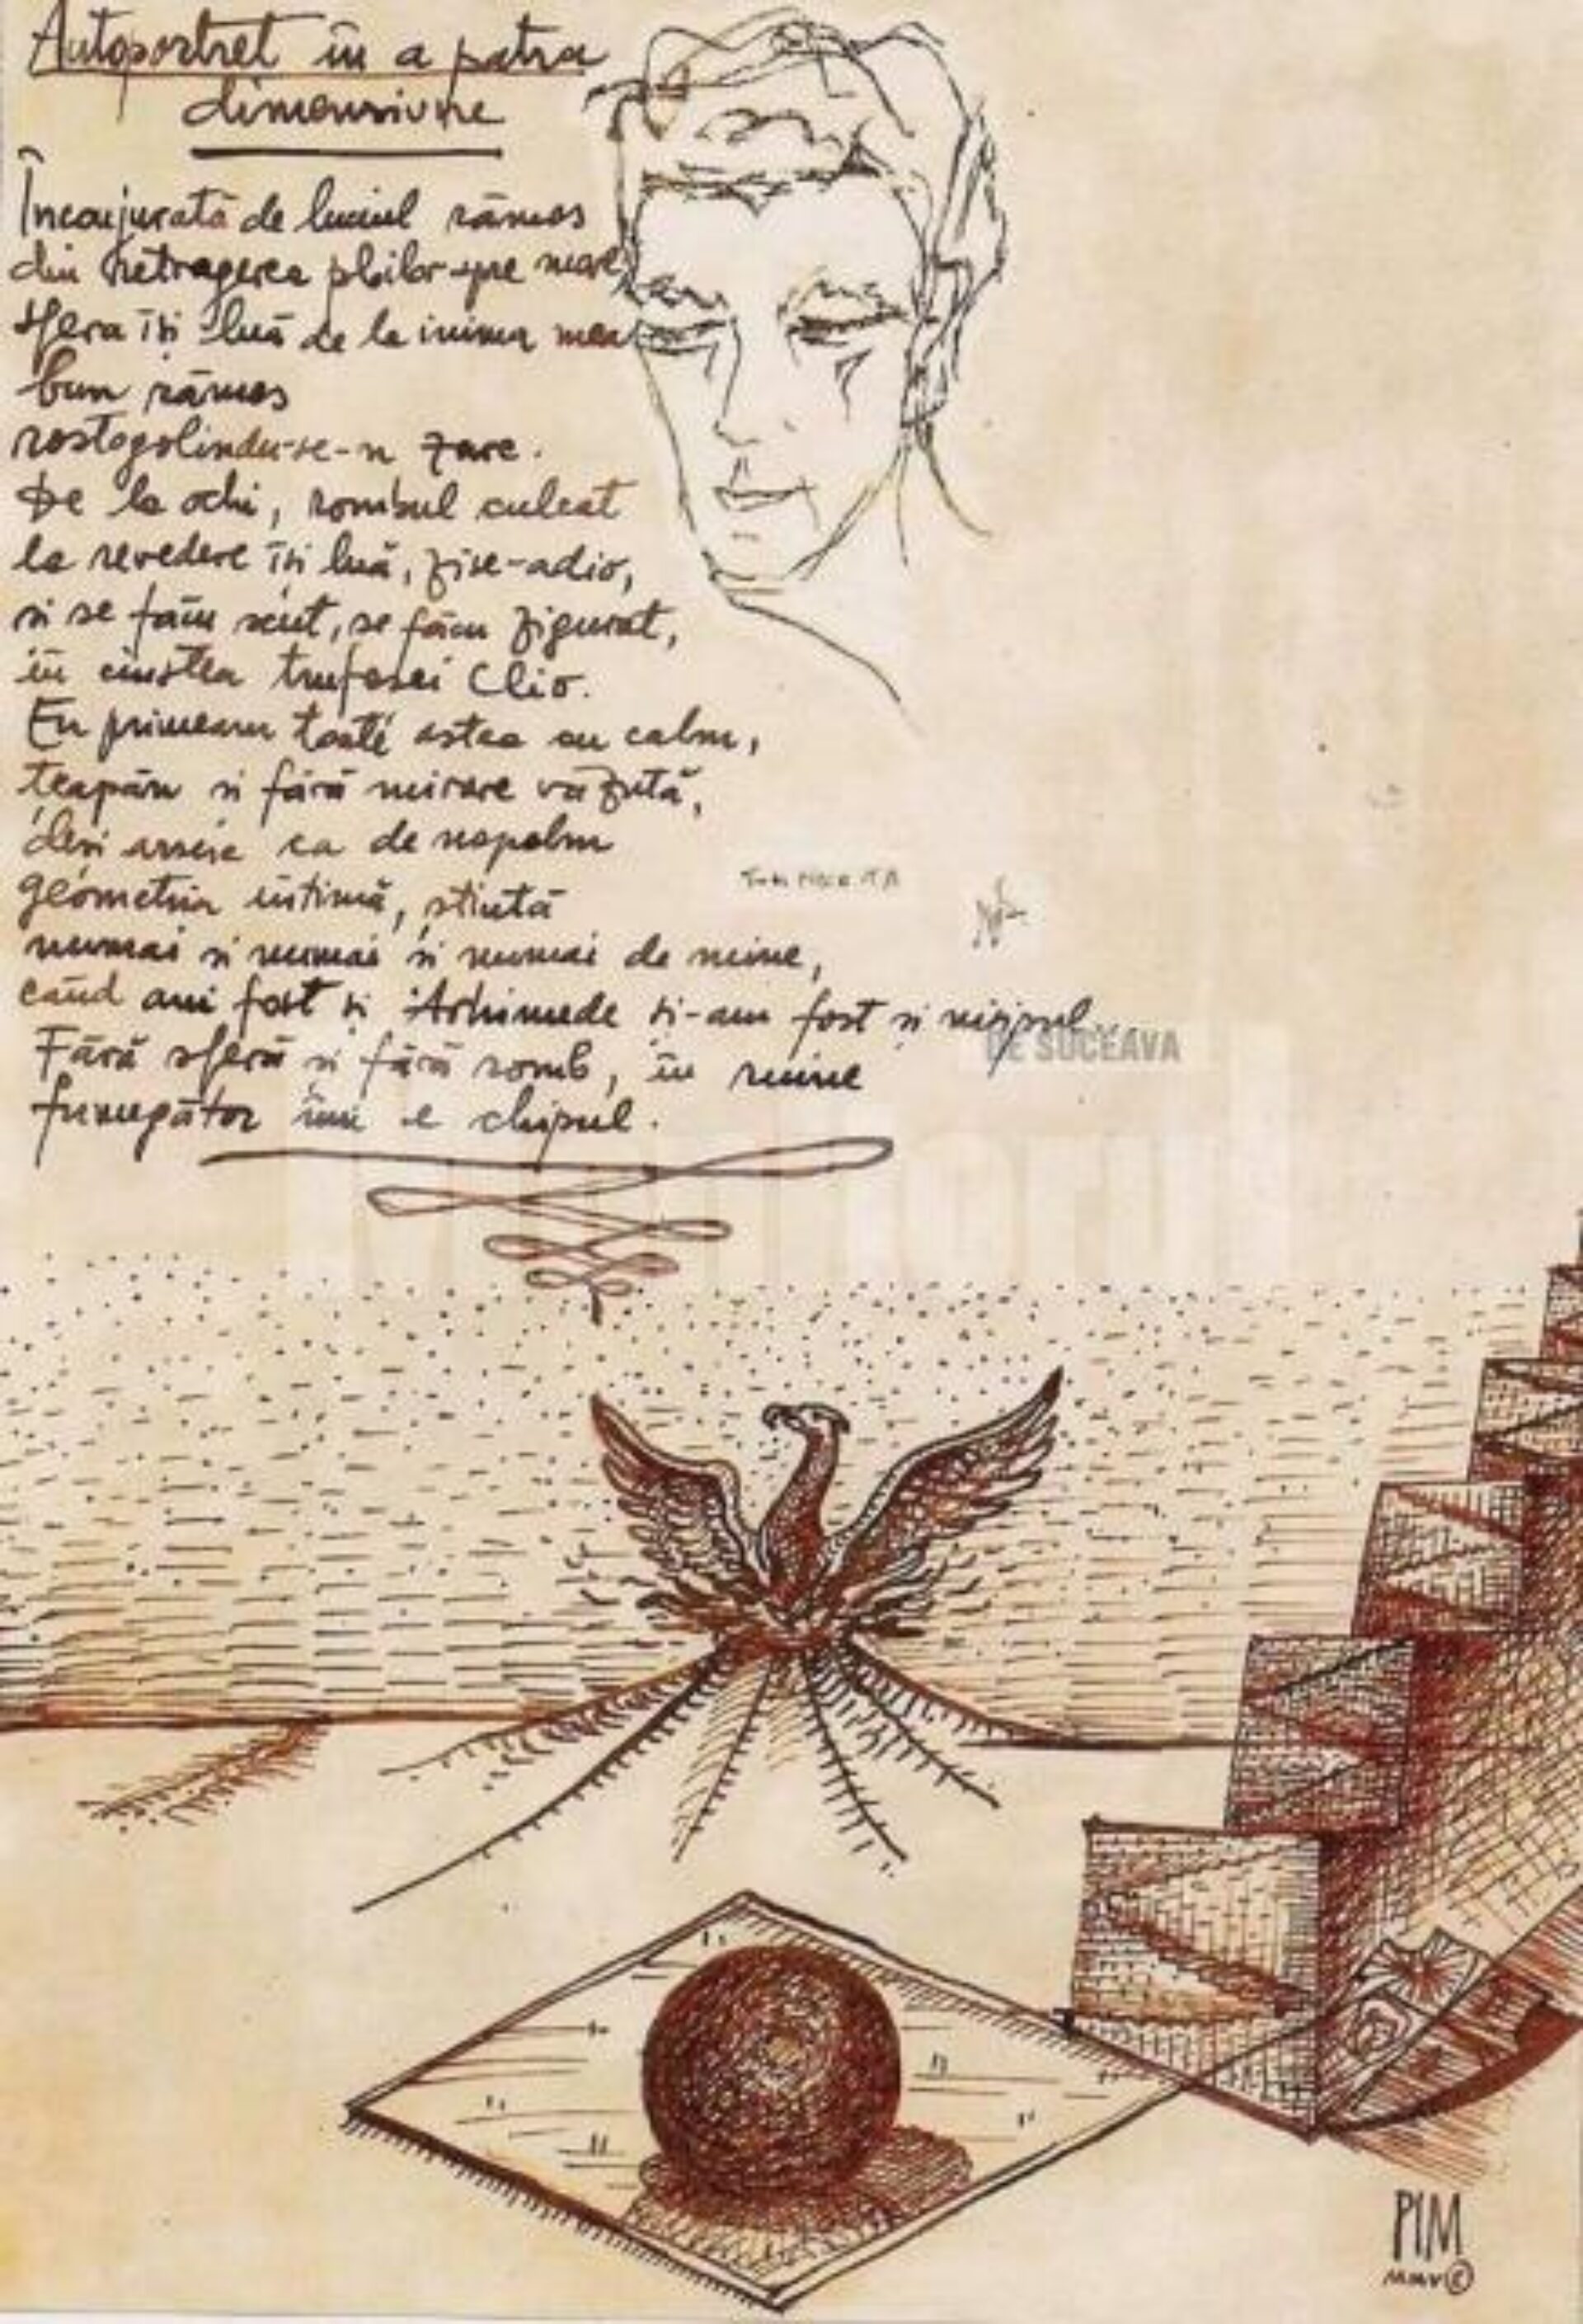 Autoportret în a patra
dimensiune
Înconjurată de luciul rămas
din retragerea ploilor spre mare,
sfera își luă de la inima mea
bun rămas
rostogolindu-se-n zare.
De la ochi, rombul culcat
la revedere își luă, zise-adio,
și se făcu scut, se făcu zigurat,
în cinstea trufașei Clio.
Eu primeam toate astea cu calm,
țeapăn și fără mirare văzută,
deși arseie ca de napalm
geometria intimă, știută
numai și numai și numai de mine,
când am fost și Arhimede și-am fost și nisipul...
Fără sferă și fără romb, în ruine
fumegător îmi e chipul.
DE SUCEAVA
Monitorul
PIM
MMV ©